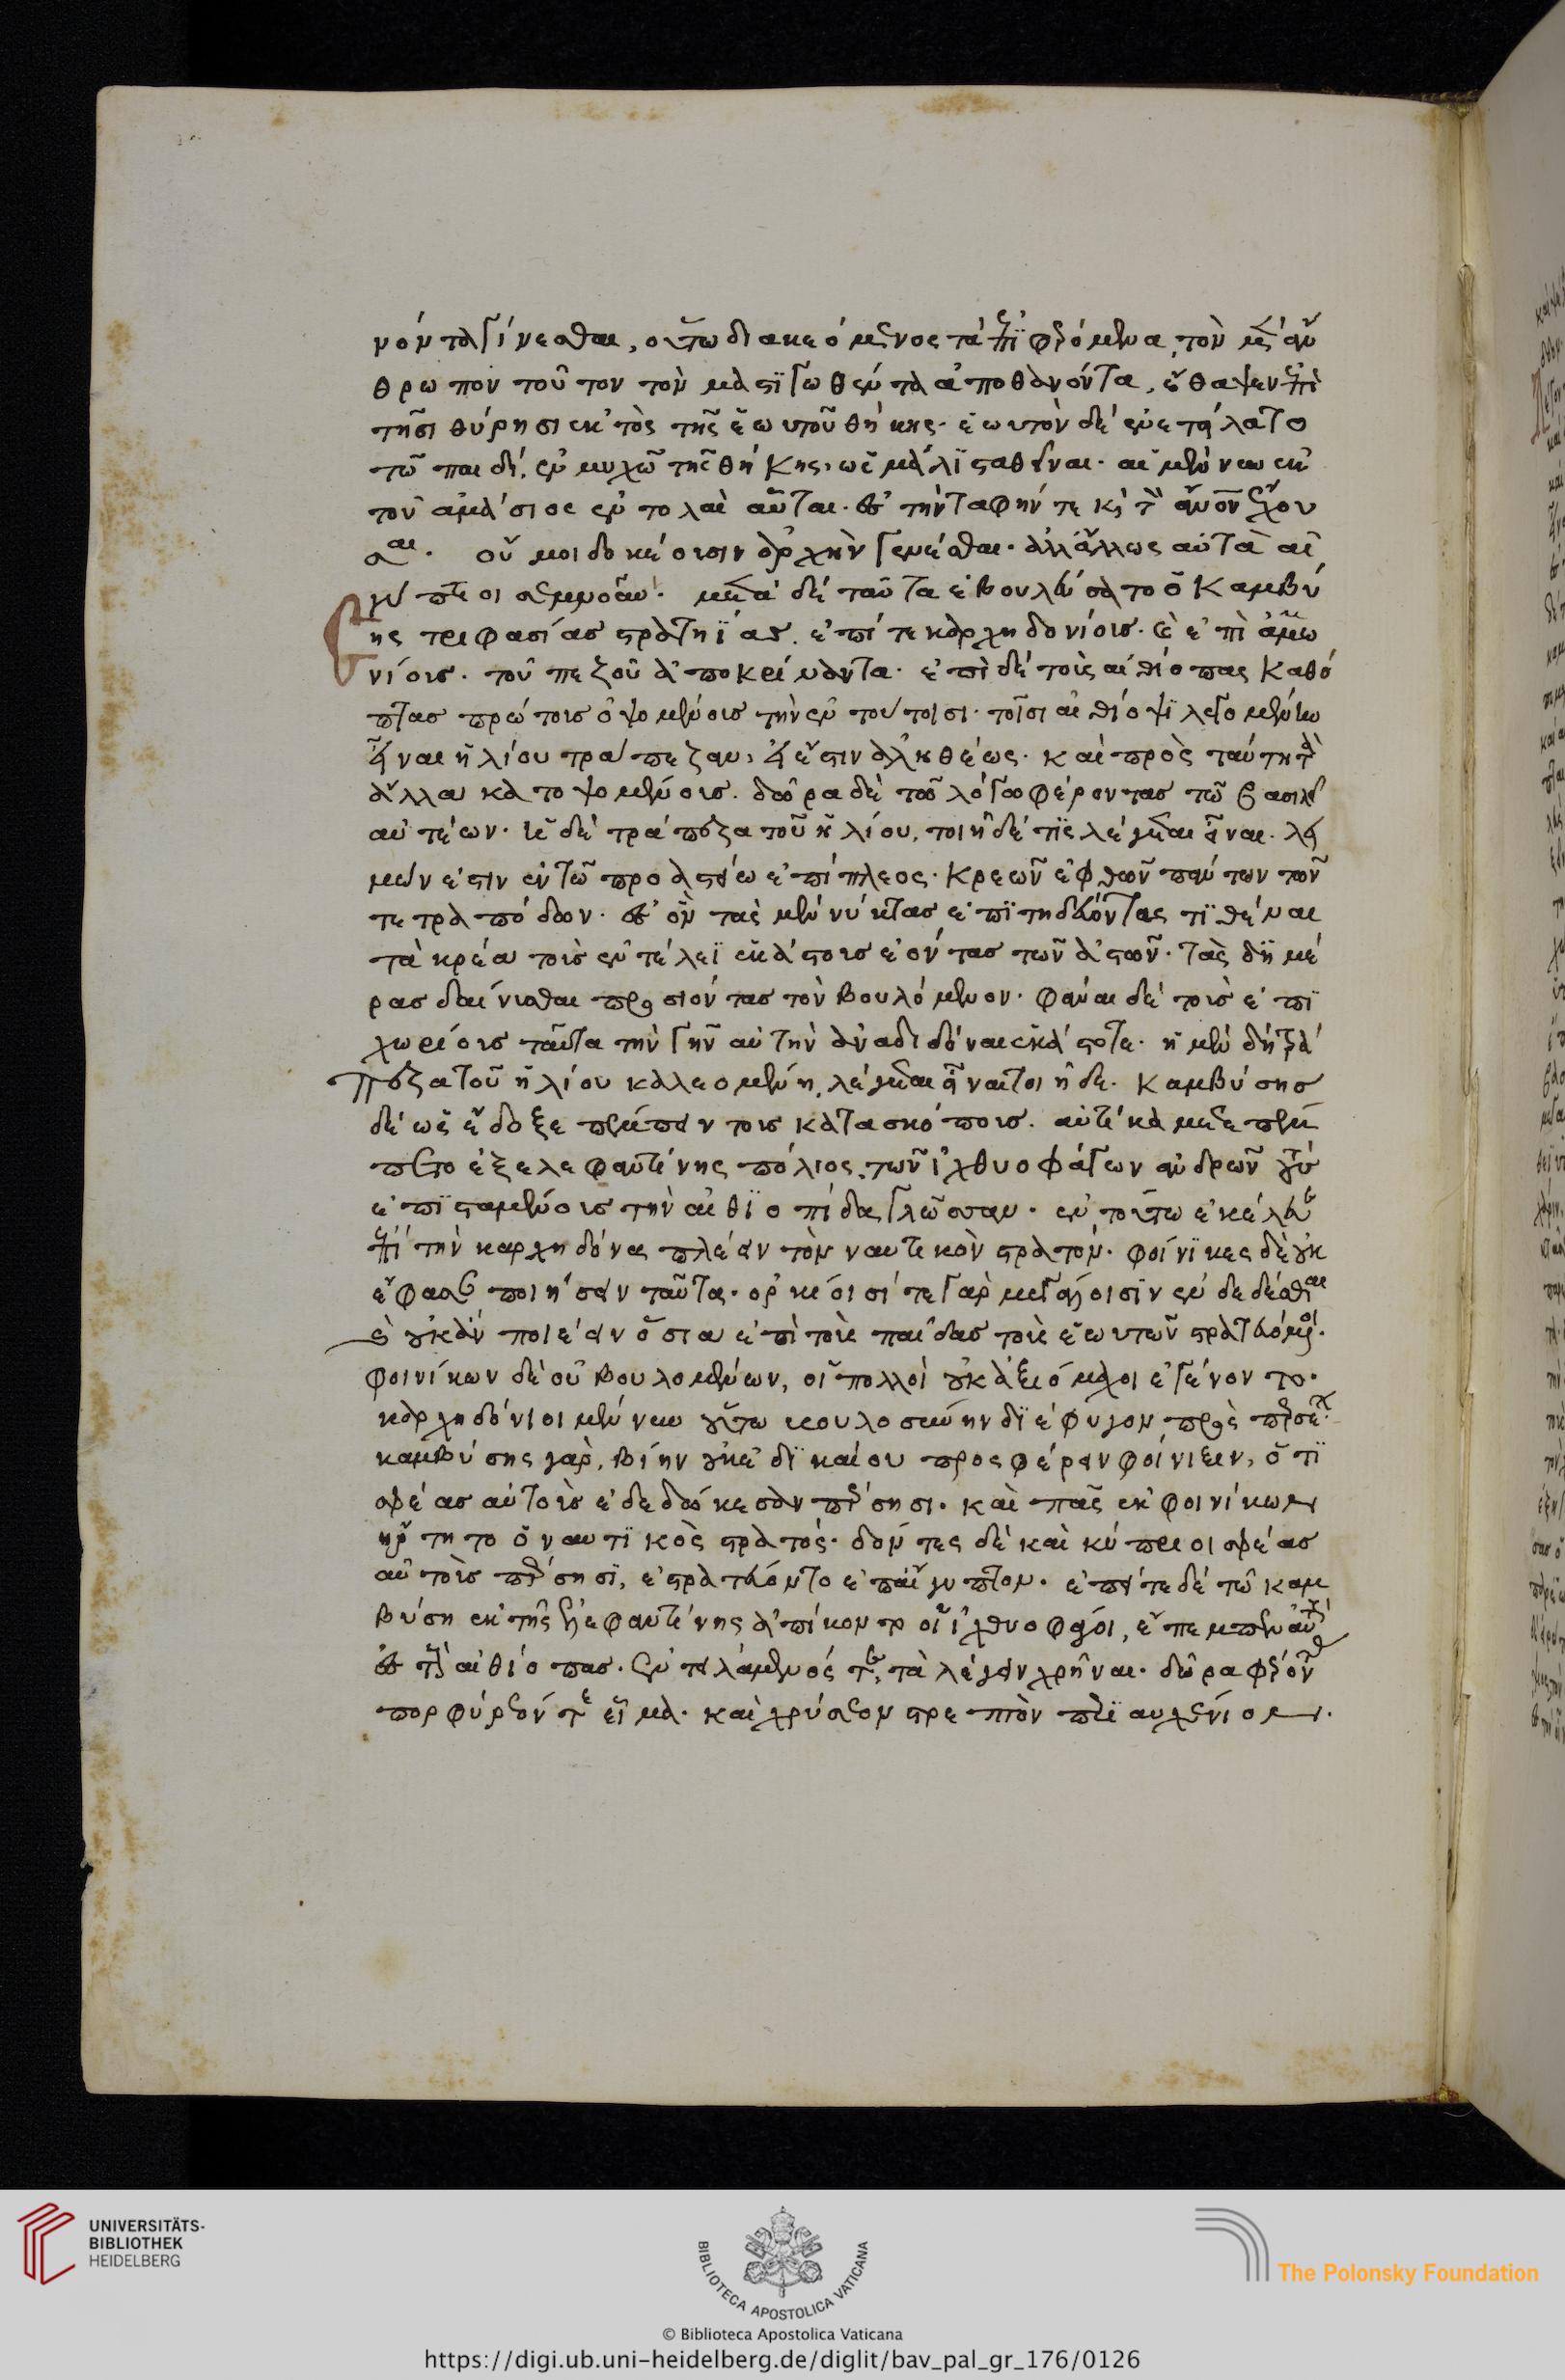 νόντα γίνεσθαι, οὕτω δἰ ἀκεόμενος τὰ ἐπιφερόμενα, τὸν μὲν ἄν
θρωπον τοῦτον τὸν μαστιγωθέντα ἀποθανόντα, ἔθαψεν ἐπὶ
τῆσι θύρησι ἐκτὸς τῆς ἑωυτοῦ θήκης· ἑωυτὸν δὲ ἐνετείλατο
τῶ παιδὶ, ἐν μυχῶ τῆς θήκης, ὡς μάλιστα θεῖναι· αἱ μέν νυν ἐκ
τοῦ ἀμάσιος ἐντολαὶ αὗται· ἐς τὴν ταφήν τε καὶ τὸν ἄνθρωπον ἔχου
σαι. οὔ μοι δοκέουσιν ἀρχὴν γενέσθαι· ἀλλ' ἄλλως αὐτὰ αἰ
γύπτιοι σεμνοῦν. μετὰ δὲ ταῦτα ἐβουλεύσατο ὁ Καμβύ
σης τριφασίας στρατηίας. ἐπί τε καρχηδονίοις· καὶ ἐπὶ ἀμμω
νίοις. τοῦ πεζοῦ ἀποκρίναντα· ἐπὶ δὲ τοὺς αἰθίοπας κατό
πτας πρώτους ὀψομένους τὴν ἐν τούτοισι τοῖσι αἰθίοψι λεγομένην
εἶναι ἡλίου τράπεζαν, εἰ ἔστιν ἀληθέως· καὶ πρὸς ταύτη τὰ
ἄλλα κατοψομένους. δῶρα δὲ τῶ λόγω φέροντας τῶ βασιλεῖ
αὐτέων· ἡ δὲ τράπεζα τοῦ ἡλίου, τοιήδε τις λέγεται εἶναι. λει
μών ἐστιν ἐν τῶ προαστείω ἐπίπλεος· κρεῶν ἑφθῶν πάντων τῶν
τετραπόδων· ἐς ὃν τὰς μὲν νύκτας ἐπιτηδεύοντας τιθέναι
τὰ κρέα τοὺς ἐν τέλεϊ ἑκάστους ἐόντας τῶν ἀστῶν· τὰς δὲ ἡμέ
ρας δαίνυσθαι προσιόντας τὸν βουλόμενον· φάναι δὲ τοὺς ἐπι
χωρίους ταῦτα τὴν γῆν αὐτὴν ἀναδιδόναι ἑκάστοτε· ἡ μὲν δὴ τρά
πεζα τοῦ ἡλίου καλεομένη, λέγεται εἶναι τοιήδε. Καμβύσης
δὲ ὡς ἔδοξε πέμπειν τοὺς κατασκόπους. αὐτίκα μετεπέμ
πετο ἐξ ἐλεφαντίνης πόλιος, τῶν ἰχθυοφάγων ἀνδρῶν τοὺς
ἐπισταμένους τὴν αἰθιοπίδα γλῶσσαν. ἐν τούτω ἐκέλευε
ἐπὶ τὴν καρχηδόνα πλέειν τὸν ναυτικὸν στρατόν. φοίνικες δὲ οὐκ
ἔφασαν ποιήσειν ταῦτα· ὁρκίοισί τε γὰρ μεγάλοισιν ἐνδεδέσθαι
καὶ οὐκ ἂν ποιέειν ὅσια ἐπὶ τοὺς παῖδας τοὺς ἑωυτῶν στρατευόμενοι.
φοινίκων δὲ οὐ βουλομένων, οἱ πολλοὶ οὐκ ἀξιόμαχοι ἐγένοντο.
καρχηδόνιοι μέν νυν οὕτω δουλοσύνην διέφυγον πρὸς περσέων.
καμβύσης γὰρ, βίην οὐκ ἐδικαίου προσφέρειν φοίνιξιν, ὅτι
σφέας αὐτοὺς ἐδεδώκεσαν πέρσησι. καὶ πᾶς ἐκ φοινίκων
ἤρτητο ὁ ναυτικὸς στρατός. δόντες δὲ καὶ κύπριοι σφέας
αὐτοὺς πέρσησι, ἐστρατεύοντο ἐπ' αἴγυπτον. ἐπεί τε δὲ τῶ καμ
βύση ἐκ τῆς ἐλεφαντίνης ἀπίκοντο οἱ ἰχθυοφάγοι, ἔπεμπεν αὐτοὺς
ἐς τοὺς αἰθίοπας. ἐντειλάμενός τε, τὰ λέγειν χρῆναι. δῶρα φέροντας
πορφύρεόν τε εἷμα. καὶ χρύσεον στρεπτὸν περιαυχένιον.
UNIVERSITÄTS-
BIBLIOTHEK
HEIDELBERG
BIBLIOTECA APOSTOLICA VATICANA
The Polonsky Foundation
© Biblioteca Apostolica Vaticana
https://digi.ub.uni-heidelberg.de/diglit/bav_pal_gr_176/0126